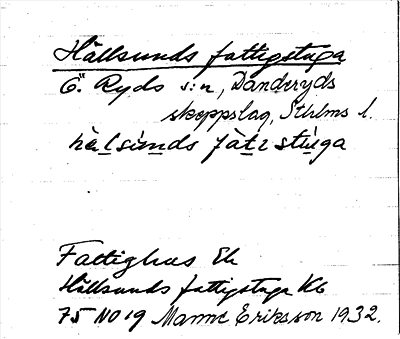 Hällsunds fattigstuga
Ö. Ryds s:n, Danderyds
skeppslag, Sthlms l.
hälsunds fàt2 stúga
Fattighus Ek
Hällsunds fattigstuga Kb
75 NO 19 Manne Eriksson 1932.